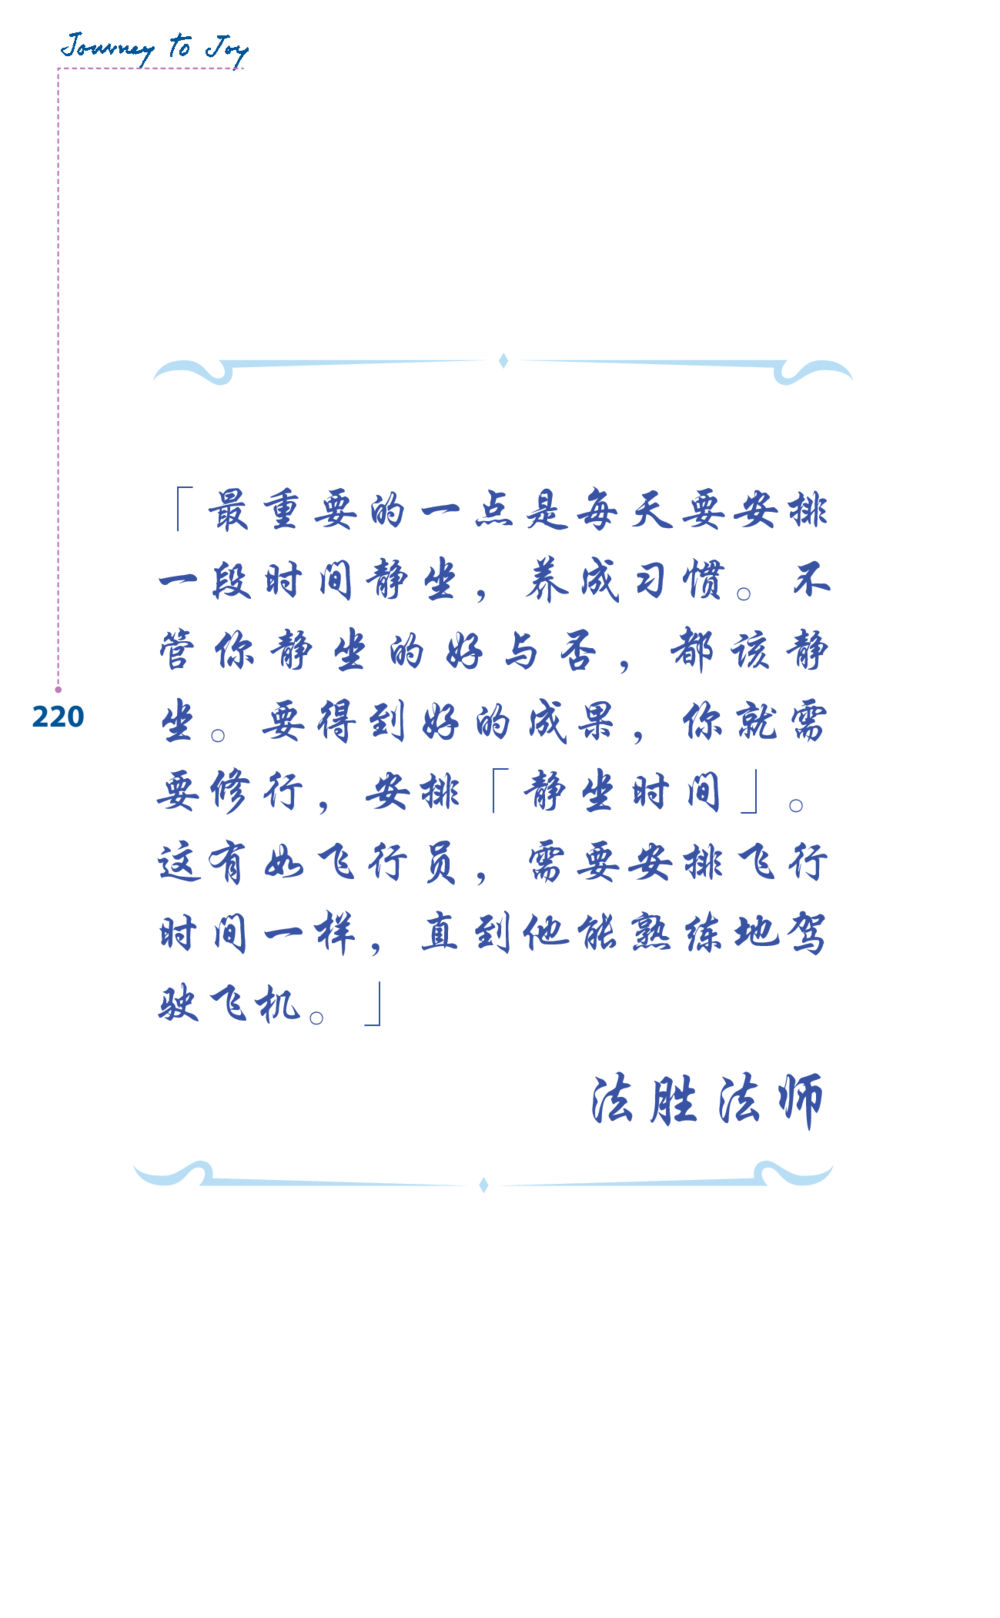 Journey to Joy
「最重要的一点是每天要安排
一段时间静坐，养成习惯。不
管你静坐的好与否，都该静
坐。要得到好的成果，你就需
要修行，安排「静坐时间」。
这有如飞行员，需要安排飞行
时间一样，直到他能熟练地驾
驶飞机。」
法胜法师
220